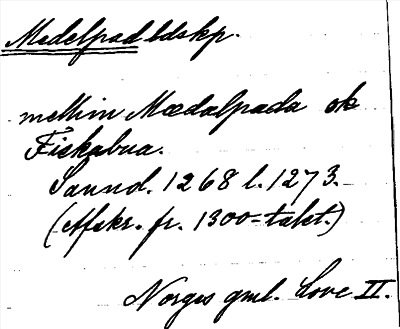 Medelpad ldskp.
mellim Mædalpada ok
Fiskabua.
Sannd. 1268 l. 1273.
(Afskr. fr. 1300-talet.)
Norges gml. Love II.